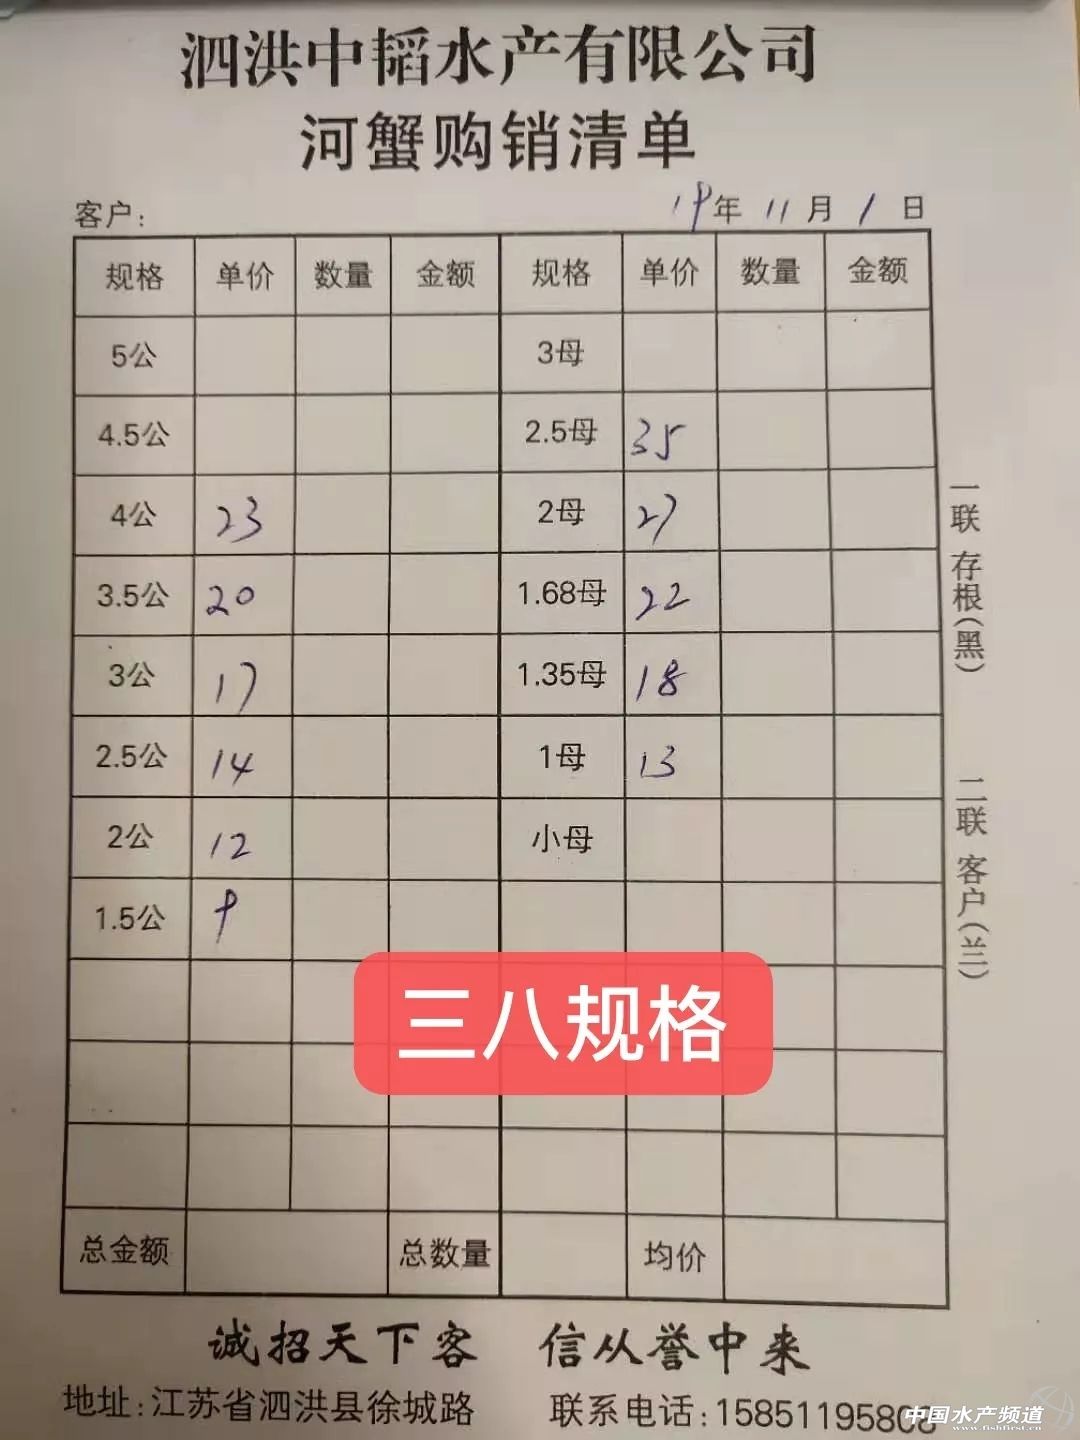 泗洪中韬水产有限公司
河蟹购销清单
客户: 19年 11月 1日
规格 单价 数量 金额 规格 单价 数量 金额
5公 3母
4.5公 2.5母 35
4公 23 2母 27
3.5公 20 1.68母 22
3公 17 1.35母 18
2.5公 14 1母 13
2公 12 小母
1.5公 9
三八规格
总金额 总数量 均价
一联 存根(黑)
二联 客户(兰)
诚招天下客 信从誉中来
地址:江苏省泗洪县徐城路 联系电话:15851195808
中国水产频道
www.fishfirst.cn